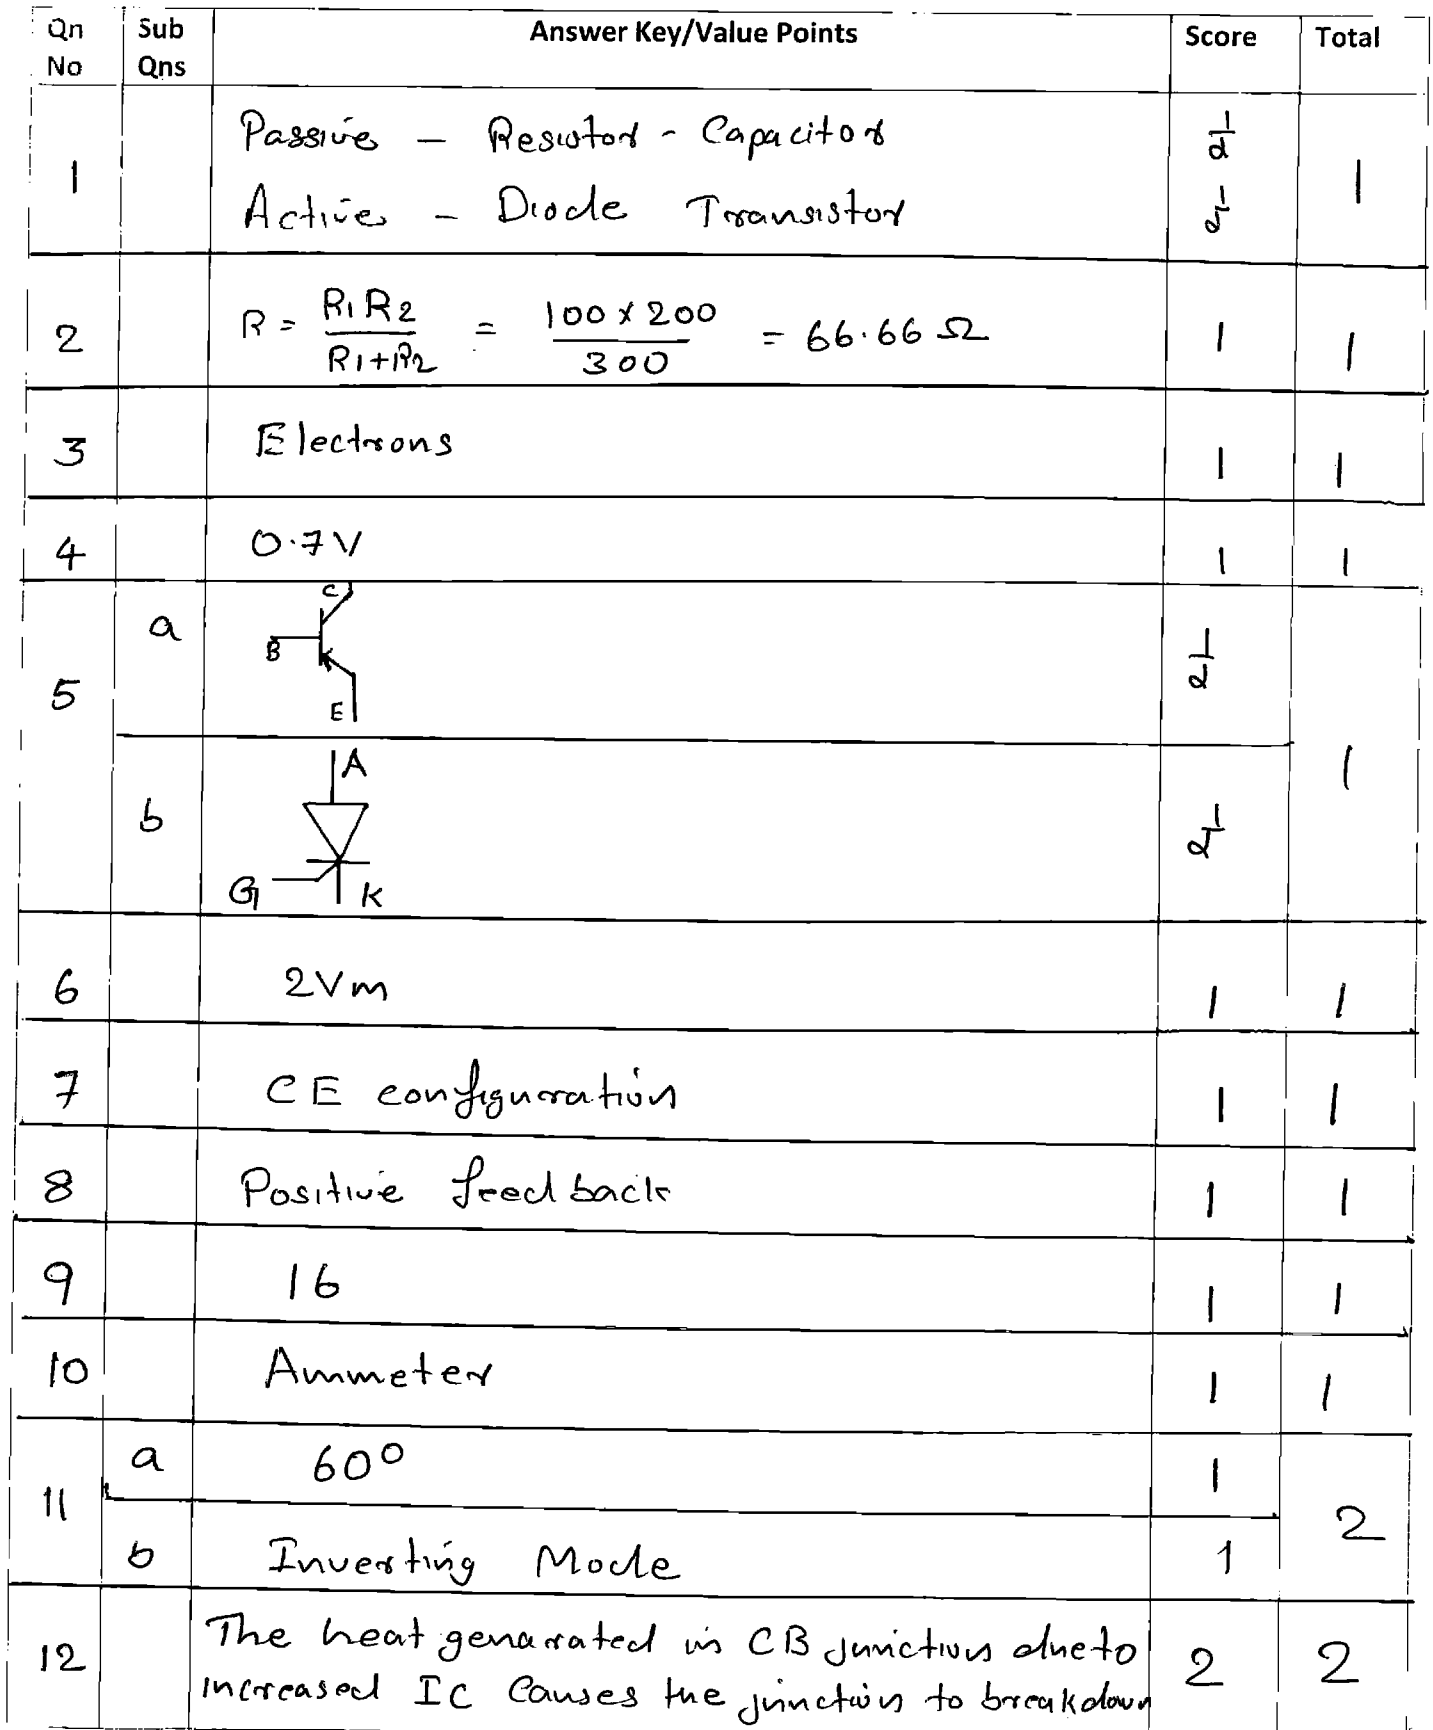 Qn No Sub Qns Answer Key/Value Points Score Total
1 Passive - Resistor - Capacitor 1/2 1
Active - Diode Transistor 1/2
2 R = R1 R2 / R1+R2 = 100 x 200 / 300 = 66.66 Ω 1 1
3 Electrons 1 1
4 0.7V 1 1
5 a C B E 1/2 1
b A G K 1/2
6 2Vm 1 1
7 CE configuration 1 1
8 Positive feedback 1 1
9 16 1 1
10 Ammeter 1 1
11 a 60° 1 2
b Inverting Mode 1
12 The heat genarated in CB junction due to 2 2
increased IC causes the junction to breakdown